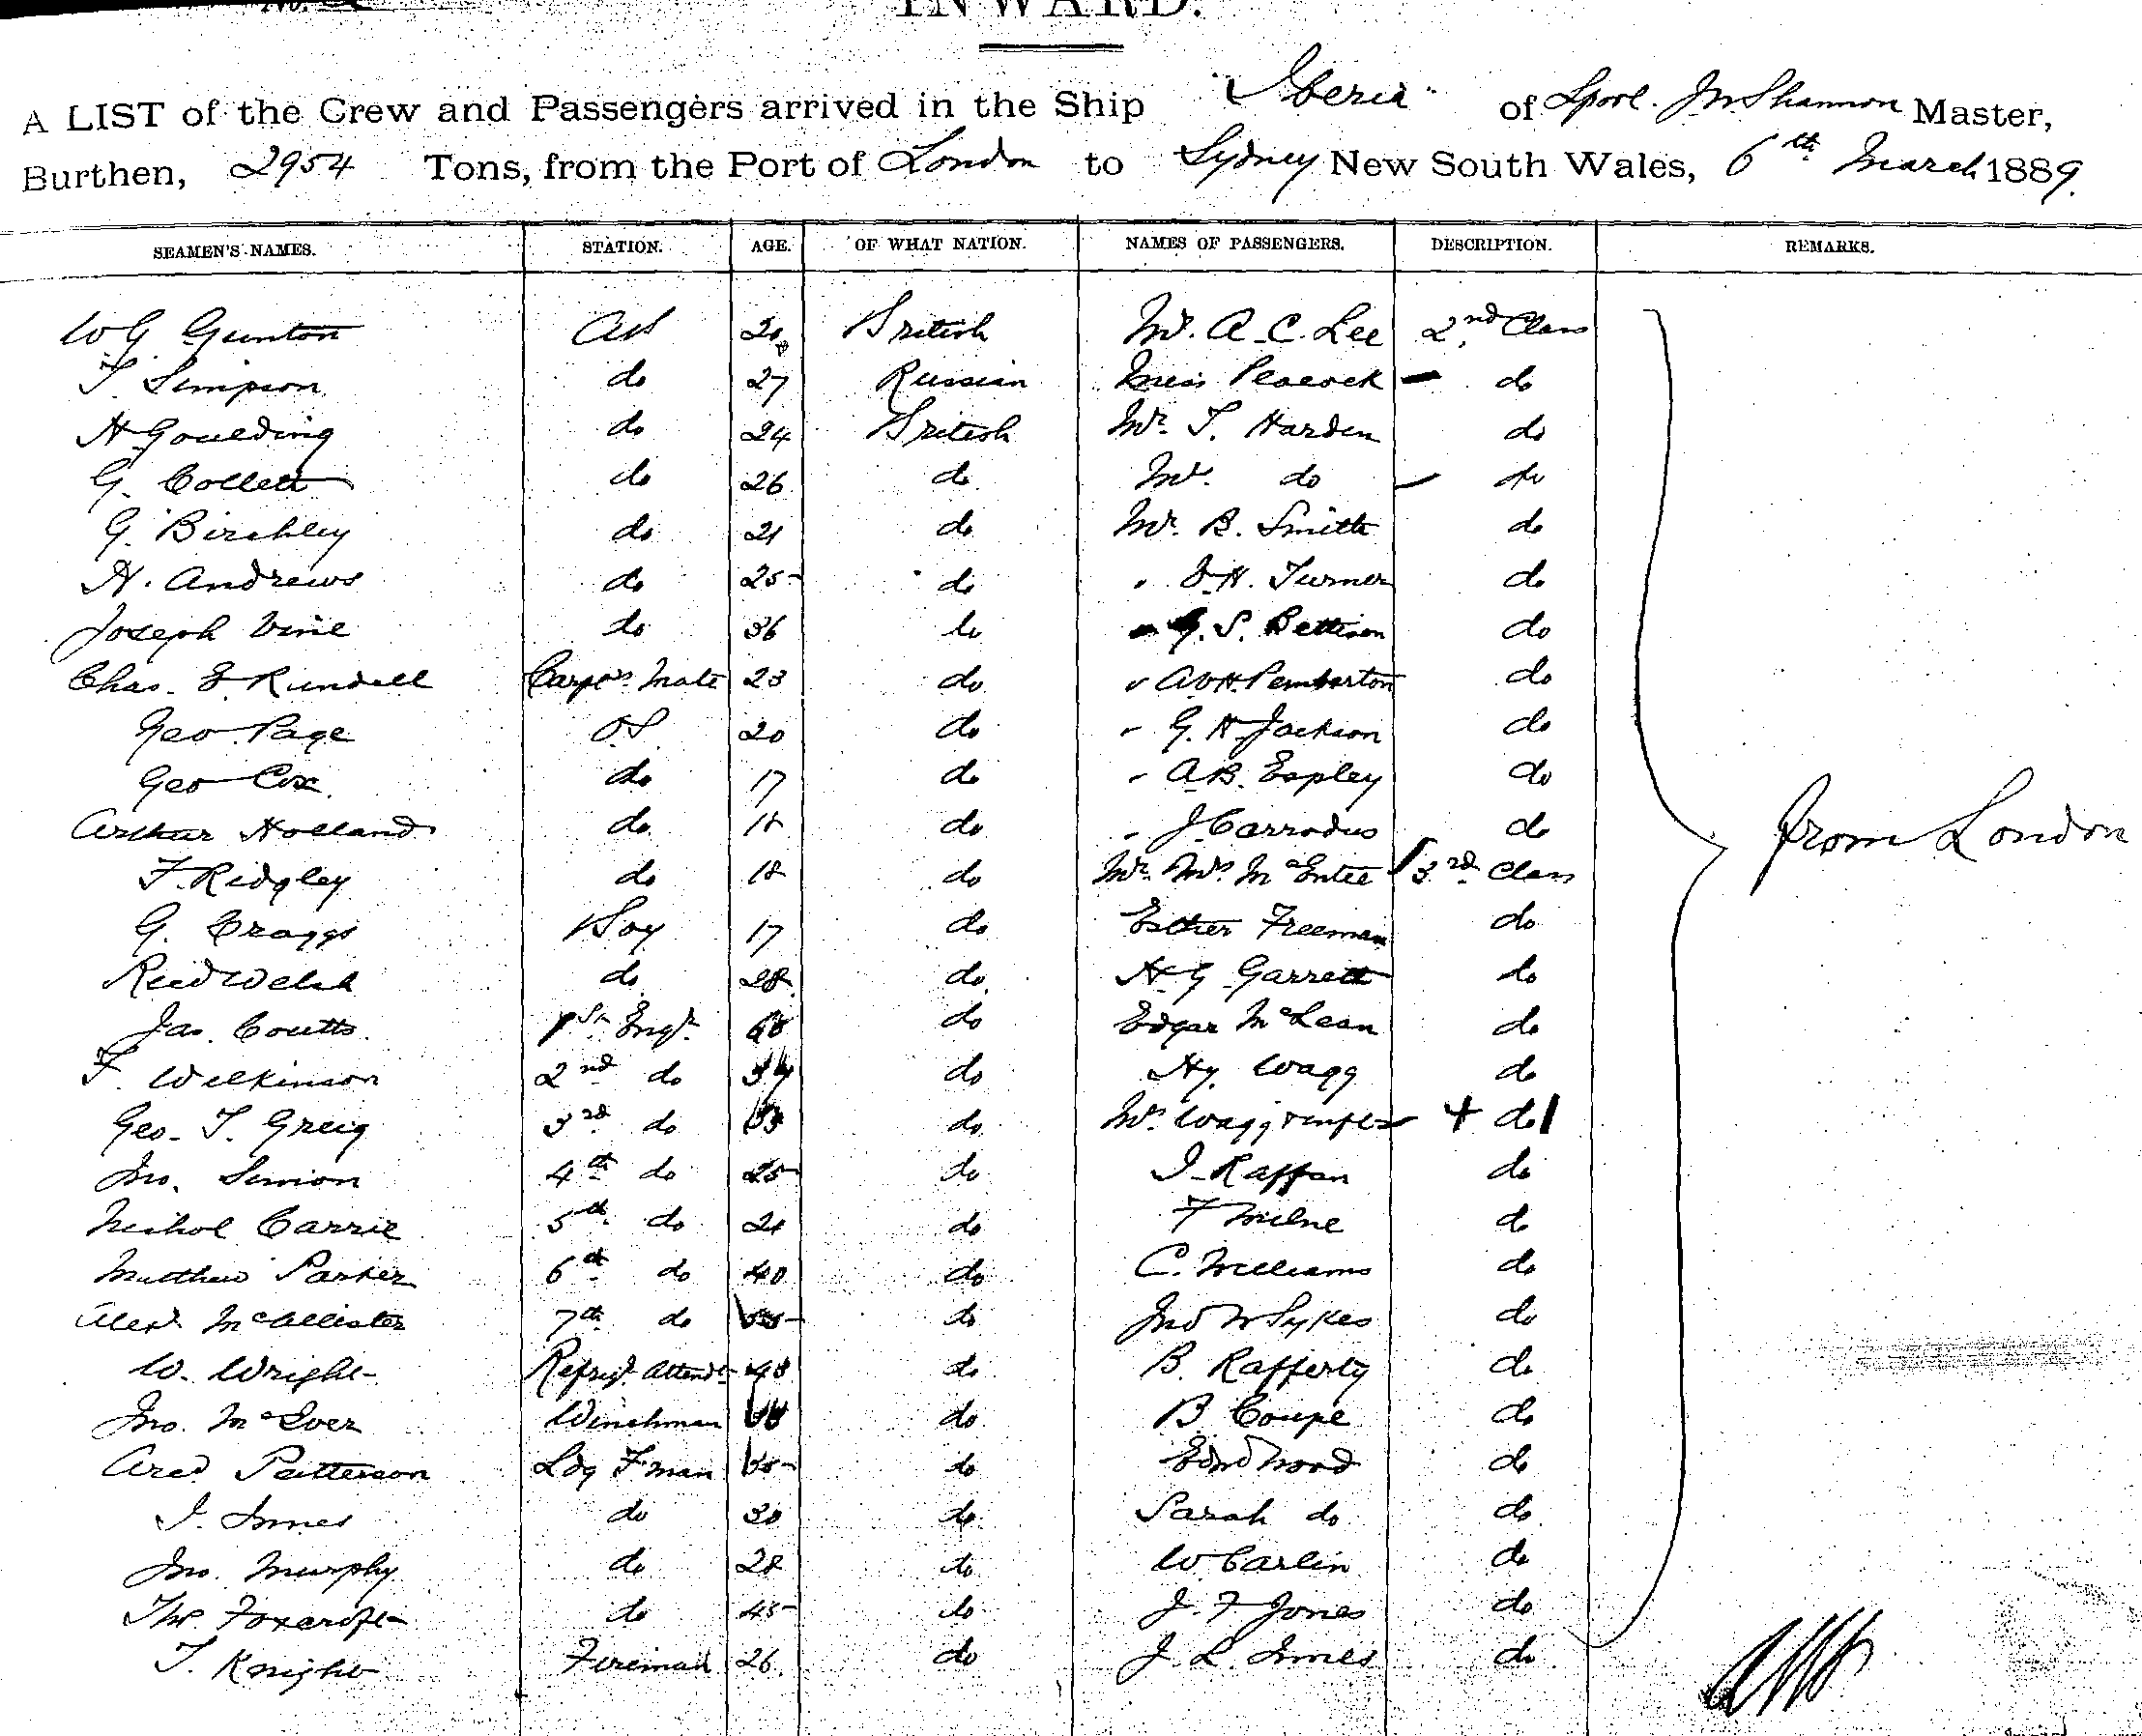 INWARD.
A LIST of the Crew and Passengers arrived in the Ship "Iberia" of Lpool. Jn Shannon Master,
Burthen, 2954 Tons, from the Port of London to Sydney New South Wales, 6th March 1889.
SEAMEN'S NAMES. STATION. AGE. OF WHAT NATION. NAMES OF PASSENGERS. DESCRIPTION. REMARKS.
W G Gunton AB 20 British Mr. A. C. Lee 2nd Class
T. Simpson do 27 Russian Miss Peacock do
H Goulding do 24 British Mr. T. Harden do
G. Collett do 26 do do do
G. Birchley do 21 do Mr. B. Smith do
H. Andrews do 25 do " J. H. Turner do
Joseph Vine do 36 do " G. S. Bettison do
Chas. F Rundell Carprs Mate 23 do " A V H. Pemberton do
Geo. Page OS 20 do " G. H Jackson do
Geo Cox. do 17 do " A B. Espley do
Arthur Holland do 18 do " J Carrodus do
F. Ridgley do 18 do Mr. Mrs. McEntee 3rd Class
G. Craggs Boy 17 do Esther Freeman do
Reid Welsh do 28 do H G Garrett do
Jas. Coutts 1st Engr. do Edgar McLean do
F. Wilkinson 2nd do 34 do Hy. Wagg do
Geo. T. Greig 3rd do 33 do Mrs. Wagg & infts do
Jno. Simion 4th do 25 do J. Raffan do
Nichol Carrie 5th do 21 do F Milne do
Matthew Parker 6th do 40 do C. Williams do
Alexr. McAllister 7th do do Jno W Sykes do
W. Wright Refrigr. Attendt 48 do B. Rafferty do
Jno. McIver Winchman do B Coupe do
Arcd. Patterson Ldg F'man do Edwd Wood do
J. Innes do 30 do Sarah do do
Jno. Murphy do 28 do W Carlin do
Thos Foxcroft do 45 do J. F Jones do
T. Knight Fireman 26 do J. L. Innes do
from London